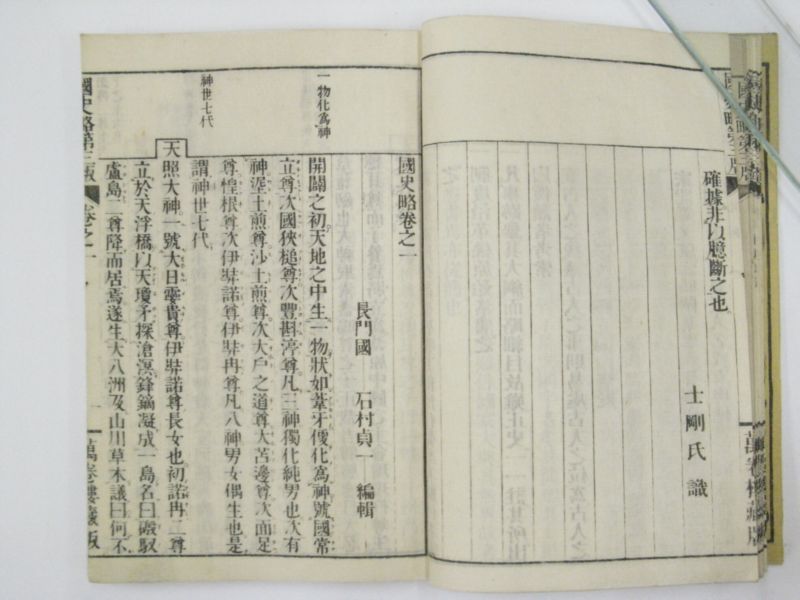 確據非以臆斷之也
士剛氏識
國史略卷之一
長門國 石村貞一 編輯
一物化為神
開闢之初天地之中生一物狀如葦牙便化為神號國常
立尊次國狹槌尊次豐斟渟尊凡三神獨化純男也次有
神埿土煎尊沙土煎尊次大戶之道尊大苫邊尊次面足
尊惶根尊次伊弉諾尊伊弉冉尊凡八神男女偶生也是
神世七代
謂神世七代
天照大神一號大日孁貴尊伊弉諾尊長女也初諾冉二尊
立於天浮橋以天瓊矛探滄溟鋒鏑凝成一島名曰磤馭
盧島二尊降而居焉遂生大八洲及山川草木議曰何不
國史略第三版 卷之一 一 萬卷樓藏版